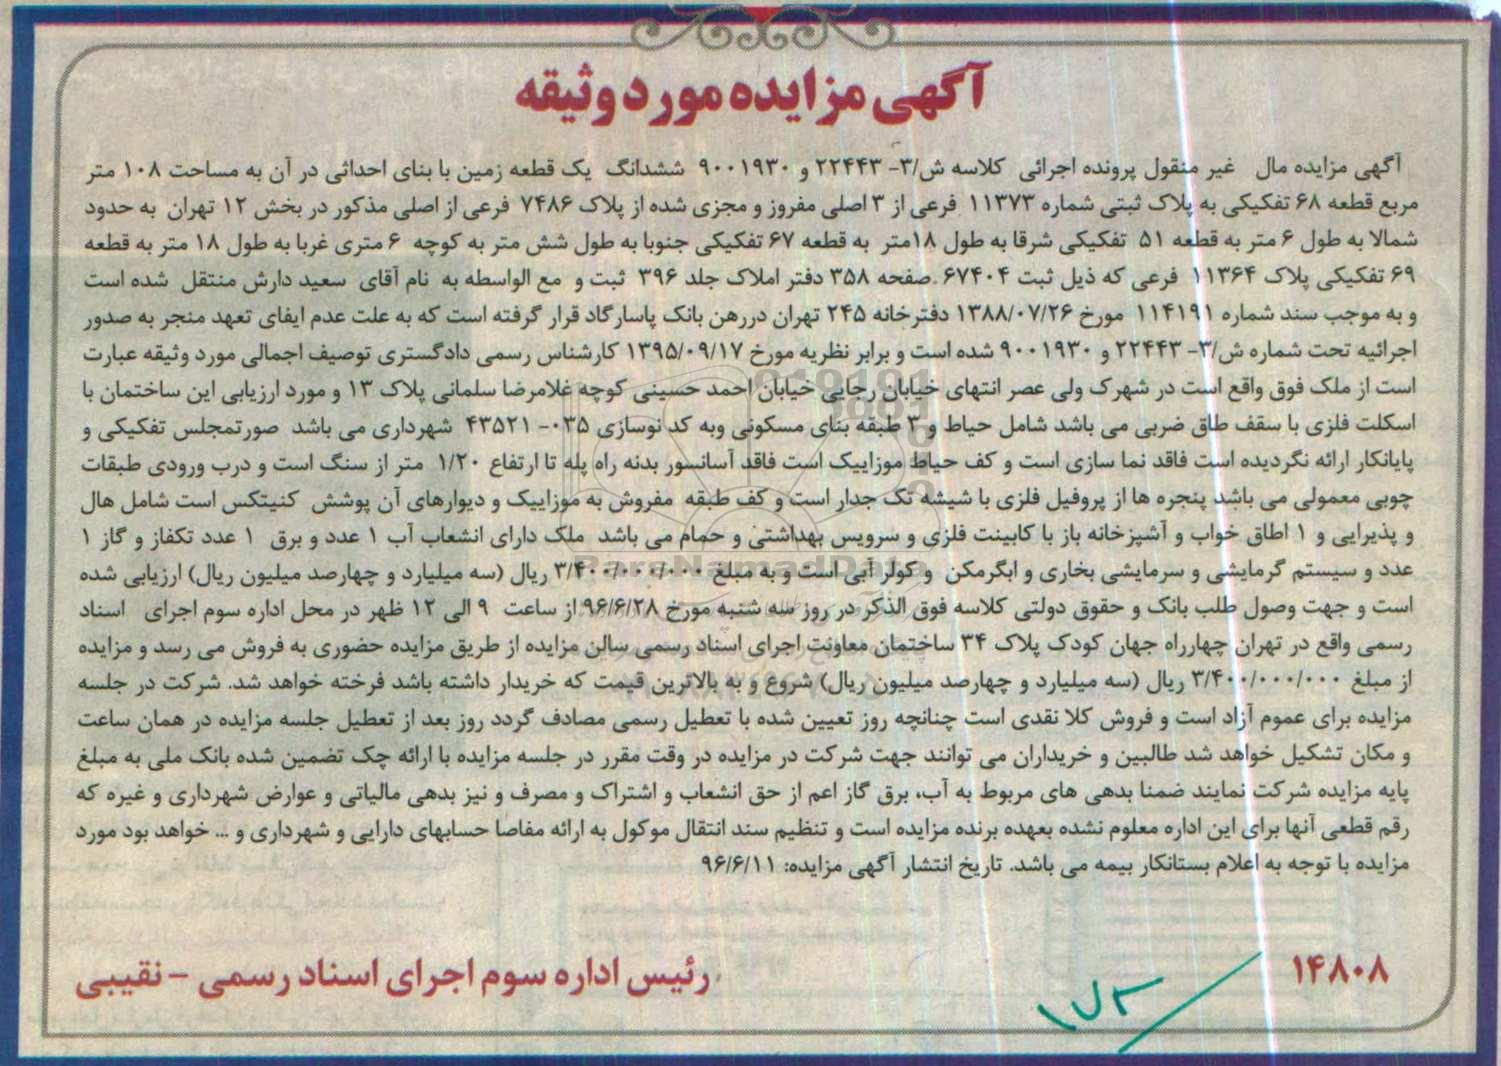 آگهی مزایده مورد وثیقه
آگهی مزایده مال غیر منقول پرونده اجرائی کلاسه ش/۳- ۲۲۴۴۳ و ۹۰۰۱۹۳۰ ششدانگ یک قطعه زمین با بنای احداثی در آن به مساحت ۱۰۸ متر
مربع قطعه ۶۸ تفکیکی به پلاک ثبتی شماره ۱۱۳۷۳ فرعی از ۳ اصلی مفروز و مجزی شده از پلاک ۷۴۸۶ فرعی از اصلی مذکور در بخش ۱۲ تهران به حدود
شمالا به طول ۶ متر به قطعه ۵۱ تفکیکی شرقا به طول ۱۸متر به قطعه ۶۷ تفکیکی جنوبا به طول شش متر به کوچه ۶ متری غربا به طول ۱۸ متر به قطعه
۶۹ تفکیکی پلاک ۱۱۳۶۴ فرعی که ذیل ثبت ۶۷۴۰۴ صفحه ۳۵۸ دفتر املاک جلد ۳۹۶ ثبت و مع الواسطه به نام آقای سعید دارش منتقل شده است
و به موجب سند شماره ۱۱۴۱۹۱ مورخ ۱۳۸۸/۰۷/۲۶ دفترخانه ۲۴۵ تهران دررهن بانک پاسارگاد قرار گرفته است که به علت عدم ایفای تعهد منجر به صدور
اجرائیه تحت شماره ش/۳- ۲۲۴۴۳ و ۹۰۰۱۹۳۰ شده است و برابر نظریه مورخ ۱۳۹۵/۰۹/۱۷ کارشناس رسمی دادگستری توصیف اجمالی مورد وثیقه عبارت
است از ملک فوق واقع است در شهرک ولی عصر انتهای خیابان رجایی خیابان احمد حسینی کوچه غلامرضا سلمانی پلاک ۱۳ و مورد ارزیابی این ساختمان با
اسکلت فلزی با سقف طاق ضربی می باشد شامل حیاط و ۳ طبقه بنای مسکونی وبه کد نوسازی ۰۳۵- ۴۳۵۲۱ شهرداری می باشد صورتمجلس تفکیکی و
پایانکار ارائه نگردیده است فاقد نما سازی است و کف حیاط موزاییک است فاقد آسانسور بدنه راه پله تا ارتفاع ۱/۲۰ متر از سنگ است و درب ورودی طبقات
چوبی معمولی می باشد پنجره ها از پروفیل فلزی با شیشه تک جدار است و کف طبقه مفروش به موزاییک و دیوارهای آن پوشش کنیتکس است شامل هال
و پذیرایی و ۱ اطاق خواب و آشپزخانه باز با کابینت فلزی و سرویس بهداشتی و حمام می باشد ملک دارای انشعاب آب ۱ عدد و برق ۱ عدد تکفاز و گاز ۱
عدد و سیستم گرمایشی و سرمایشی بخاری و ابگرمکن و کولر آبی است و به مبلغ ۳/۴۰۰/۰۰۰/۰۰۰ ریال (سه میلیارد و چهارصد میلیون ریال) ارزیابی شده
است و جهت وصول طلب بانک و حقوق دولتی کلاسه فوق الذکر در روز سه شنبه مورخ ۹۶/۶/۲۸ از ساعت ۹ الی ۱۲ ظهر در محل اداره سوم اجرای اسناد
رسمی واقع در تهران چهارراه جهان کودک پلاک ۳۴ ساختمان معاونت اجرای اسناد رسمی سالن مزایده از طریق مزایده حضوری به فروش می رسد و مزایده
از مبلغ ۳/۴۰۰/۰۰۰/۰۰۰ ریال (سه میلیارد و چهارصد میلیون ریال) شروع و به بالاترین قیمت که خریدار داشته باشد فرخته خواهد شد. شرکت در جلسه
مزایده برای عموم آزاد است و فروش کلا نقدی است چنانچه روز تعیین شده با تعطیل رسمی مصادف گردد روز بعد از تعطیل جلسه مزایده در همان ساعت
و مکان تشکیل خواهد شد طالبین و خریداران می توانند جهت شرکت در مزایده در وقت مقرر در جلسه مزایده با ارائه چک تضمین شده بانک ملی به مبلغ
پایه مزایده شرکت نمایند ضمنا بدهی های مربوط به آب، برق گاز اعم از حق انشعاب و اشتراک و مصرف و نیز بدهی مالیاتی و عوارض شهرداری و غیره که
رقم قطعی آنها برای این اداره معلوم نشده بعهده برنده مزایده است و تنظیم سند انتقال موکول به ارائه مفاصا حسابهای دارایی و شهرداری و ... خواهد بود مورد
مزایده با توجه به اعلام بستانکار بیمه می باشد. تاریخ انتشار آگهی مزایده: ۹۶/۶/۱۱
۱۴۸۰۸
رئیس اداره سوم اجرای اسناد رسمی - نقیبی
ParaNamadData